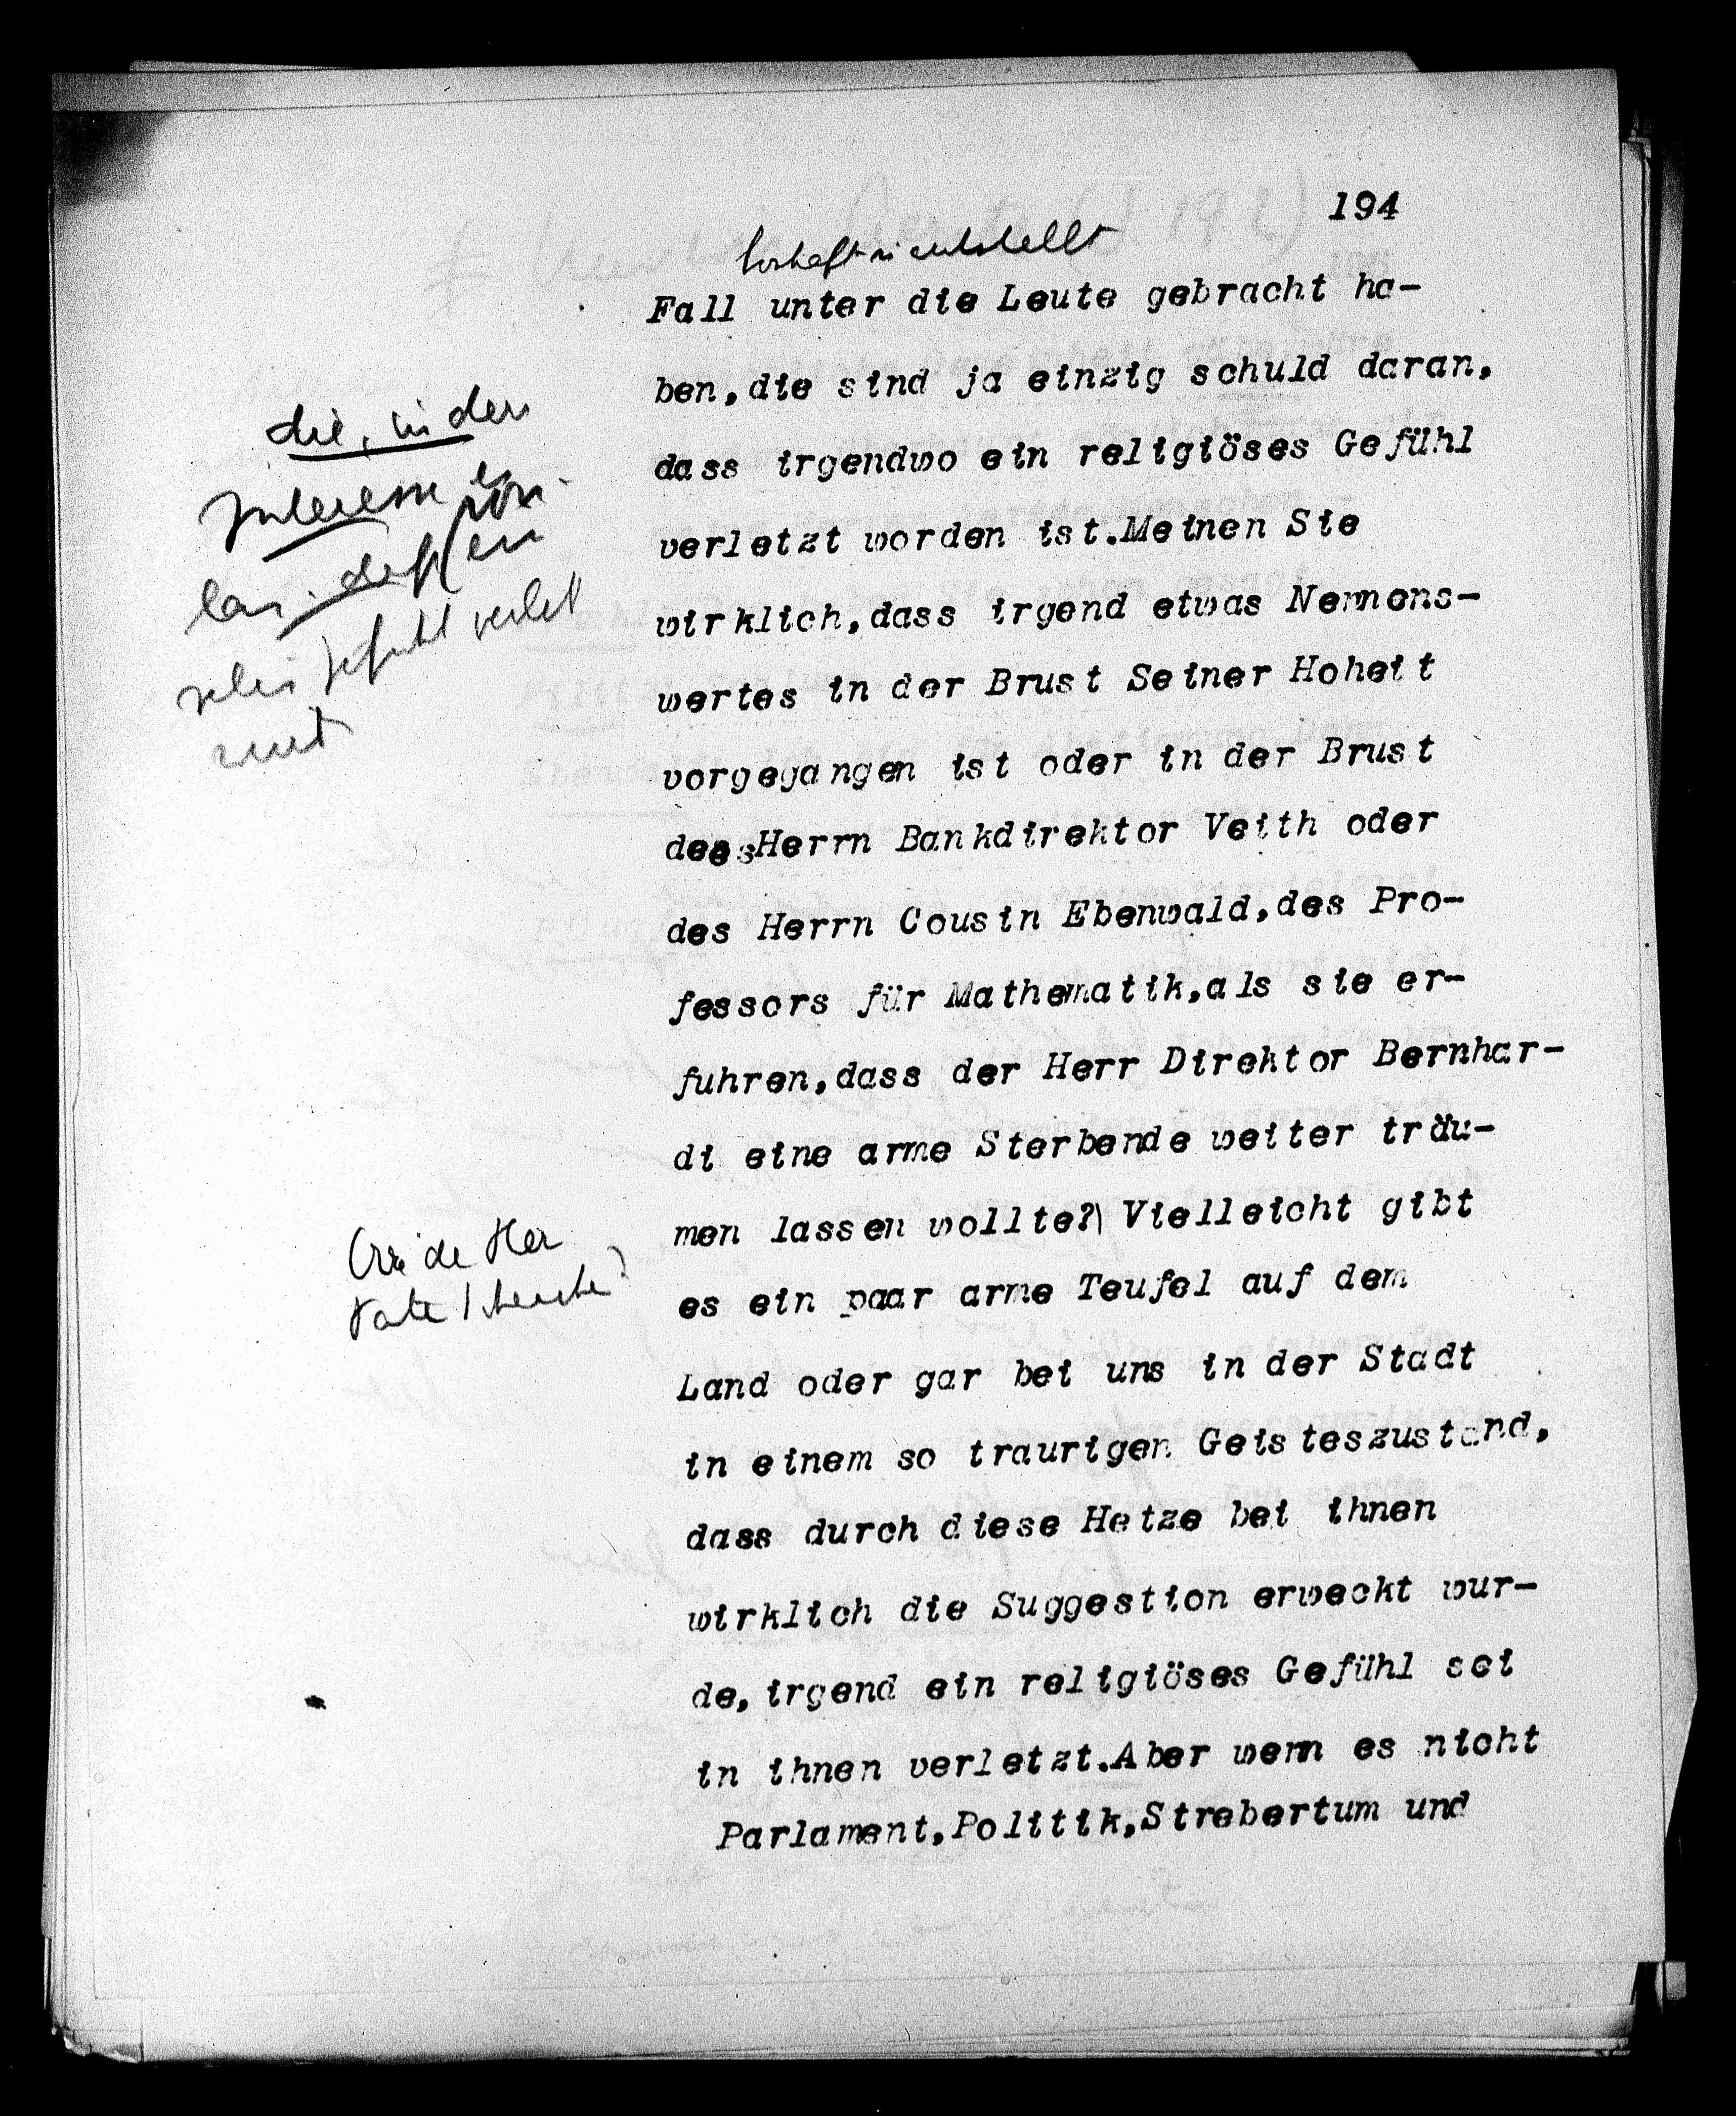 194
boshaft entstellt
Fall unter die Leute gebracht ha-
ben,die sind ja einzig schuld daran,
dass irgendwo ein religiöses Gefühl
verletzt worden ist.Meinen Sie
wirklich,dass irgend etwas Nennens-
wertes in der Brust Seiner Hoheit
vorgegangen ist oder in der Brust
des Herrn Bankdirektor Veith oder
des Herrn Cousin Ebenwald,des Pro-
fessors für Mathematik,als sie er-
fuhren,dass der Herr Direktor Bernhar-
di eine arme Sterbende weiter träu-
men lassen wollte? Vielleicht gibt
es ein paar arme Teufel auf dem
Land oder gar bei uns in der Stadt
in einem so traurigen Geisteszustand,
dass durch diese Hetze bei ihnen
wirklich die Suggestion erweckt wur-
de,irgend ein religiöses Gefühl sei
in ihnen verletzt.Aber wenn es nicht
Parlament,Politik,Strebertum und
die, in deren
Interesse es
lag, dessen
Gefühl verletzt
der Herr